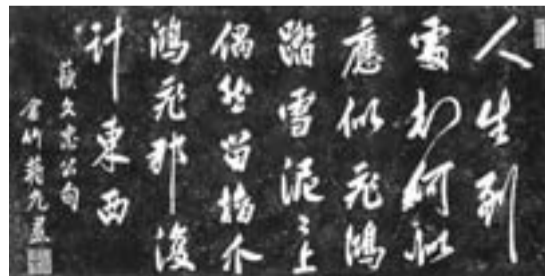 人生到
處知何似
應似飛鴻
踏雪泥々上
偶然留指爪
鴻飛那復
計東西
蘇文忠公句